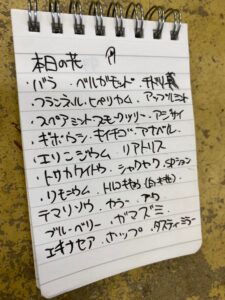 本日の花
・バラ ・ベルガモット
フランネル・ヒペリカム・アップルミント
・スペアミント スモークツリー・アジサイ
・ギボウシ キイチゴ・アナベル
・エリンジウム リアトリス
・トリカブト シャクヤク
・リモニウム・トルコキキョウ
テマリソウ カラー アワ
ブルーベリー ガマズミ
エキナセア・ホップ・ダスティーミラー